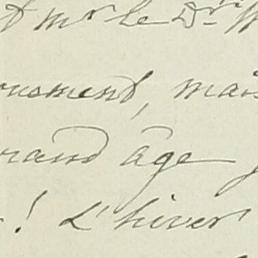 t mr le Dr W
ousement, mais
rand âge
! L'hiver